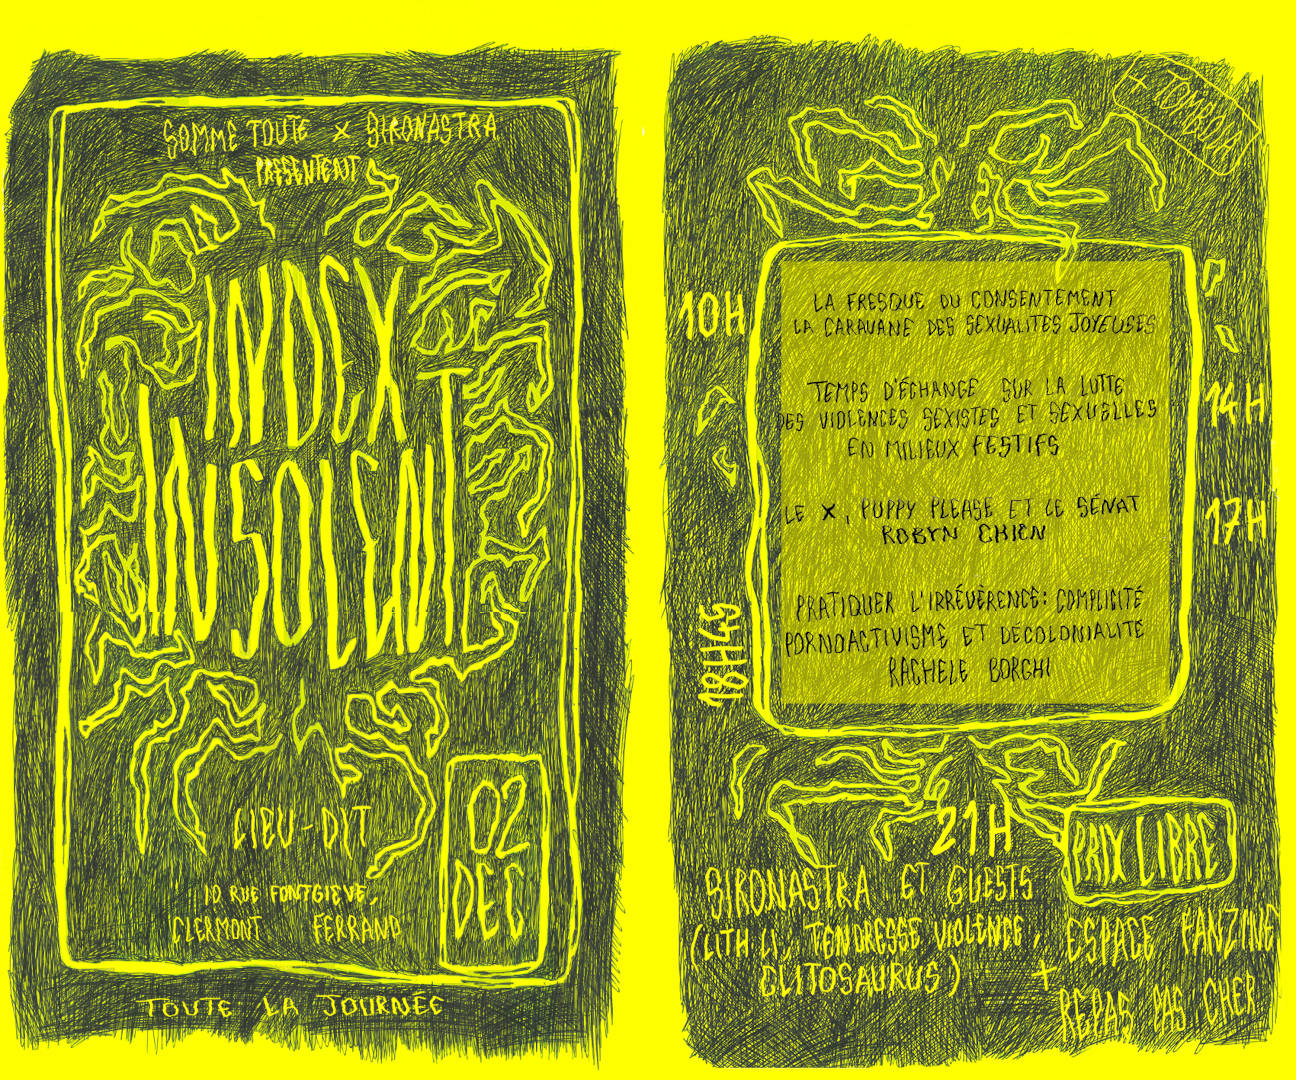 SOMME TOUTE X SIRONASTRA
PRESENTENT
INDEX
INSOLENT
LIEU-DIT
10 RUE FONTGIEVE,
CLERMONT FERRAND
02
DEC
TOUTE LA JOURNÉE
+ TOMBOLA
10H
LA FRESQUE DU CONSENTEMENT
LA CARAVANE DES SEXUALITES JOYEUSES
14H
TEMPS D'ÉCHANGE SUR LA LUTTE
DES VIOLENCES SEXISTES ET SEXUELLES
EN MILIEUX FESTIFS
17H
LE X, PUPPY PLEASE ET LE SÉNAT
ROBYN CHIEN
18H45
PRATIQUER L'IRRÉVÉRENCE: COMPLICITÉ
PORNOACTIVISME ET DECOLONIALITÉ
RACHELE BORGHI
21H
SIRONASTRA ET GUESTS
(LITH LI, TENDRESSE VIOLENCE,
CLITOSAURUS)
PRIX LIBRE
+ ESPACE FANZINE
REPAS PAS CHER